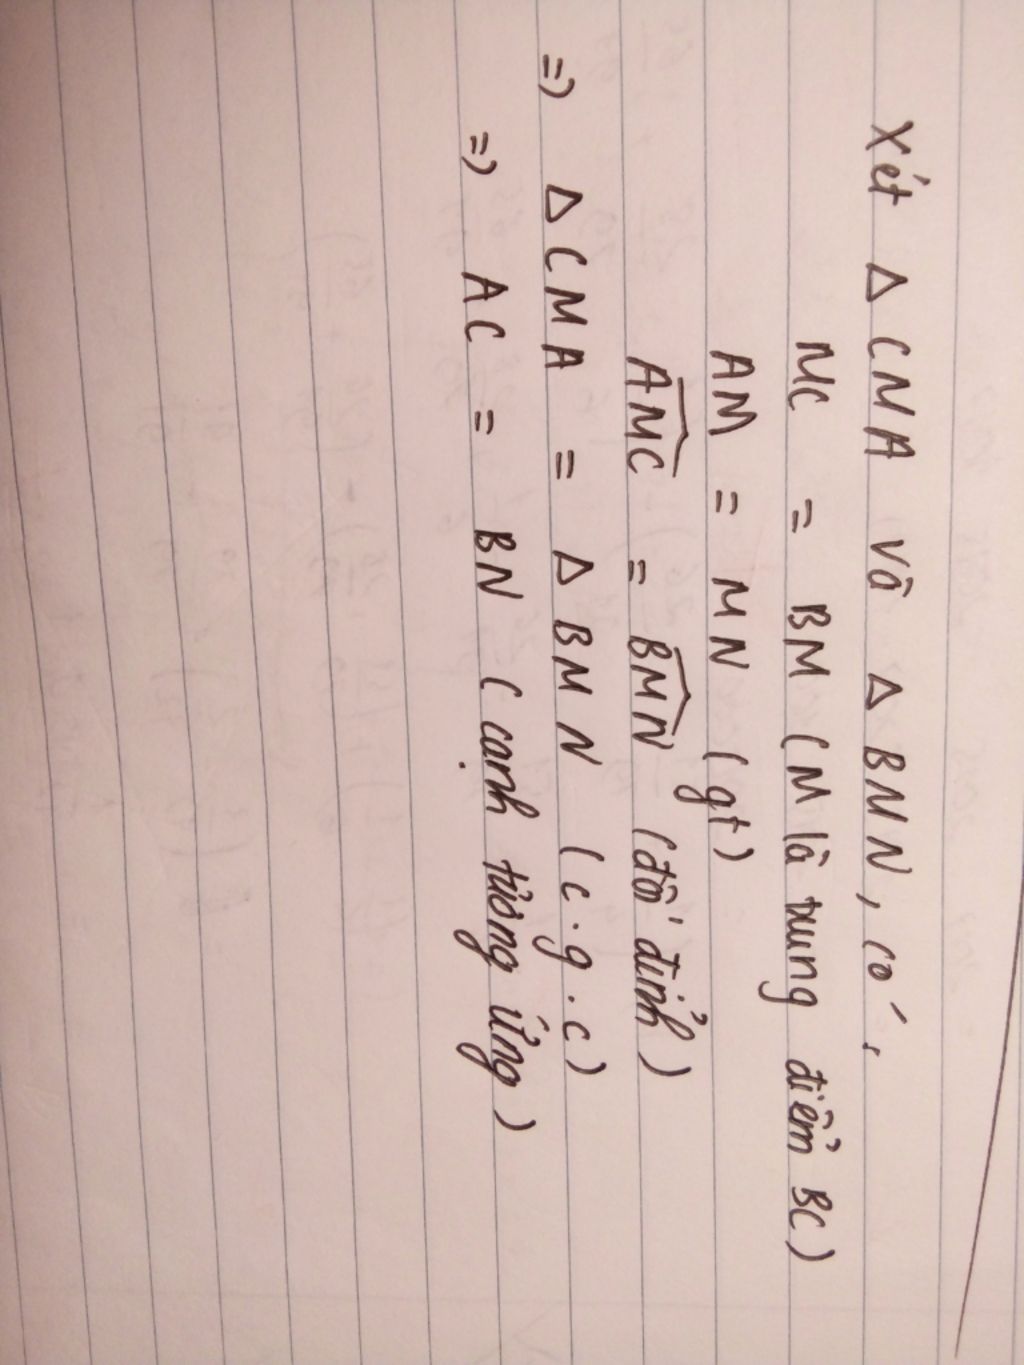 Xét Δ CMA và Δ BMN, có,
MC = BM (M là trung điểm BC)
AM = MN (gt)
$\widehat{AMC}$ = $\widehat{BMN}$ (đối đỉnh)
=) Δ CMA = Δ BMN (c.g.c)
=) AC = BN (cạnh tương ứng)